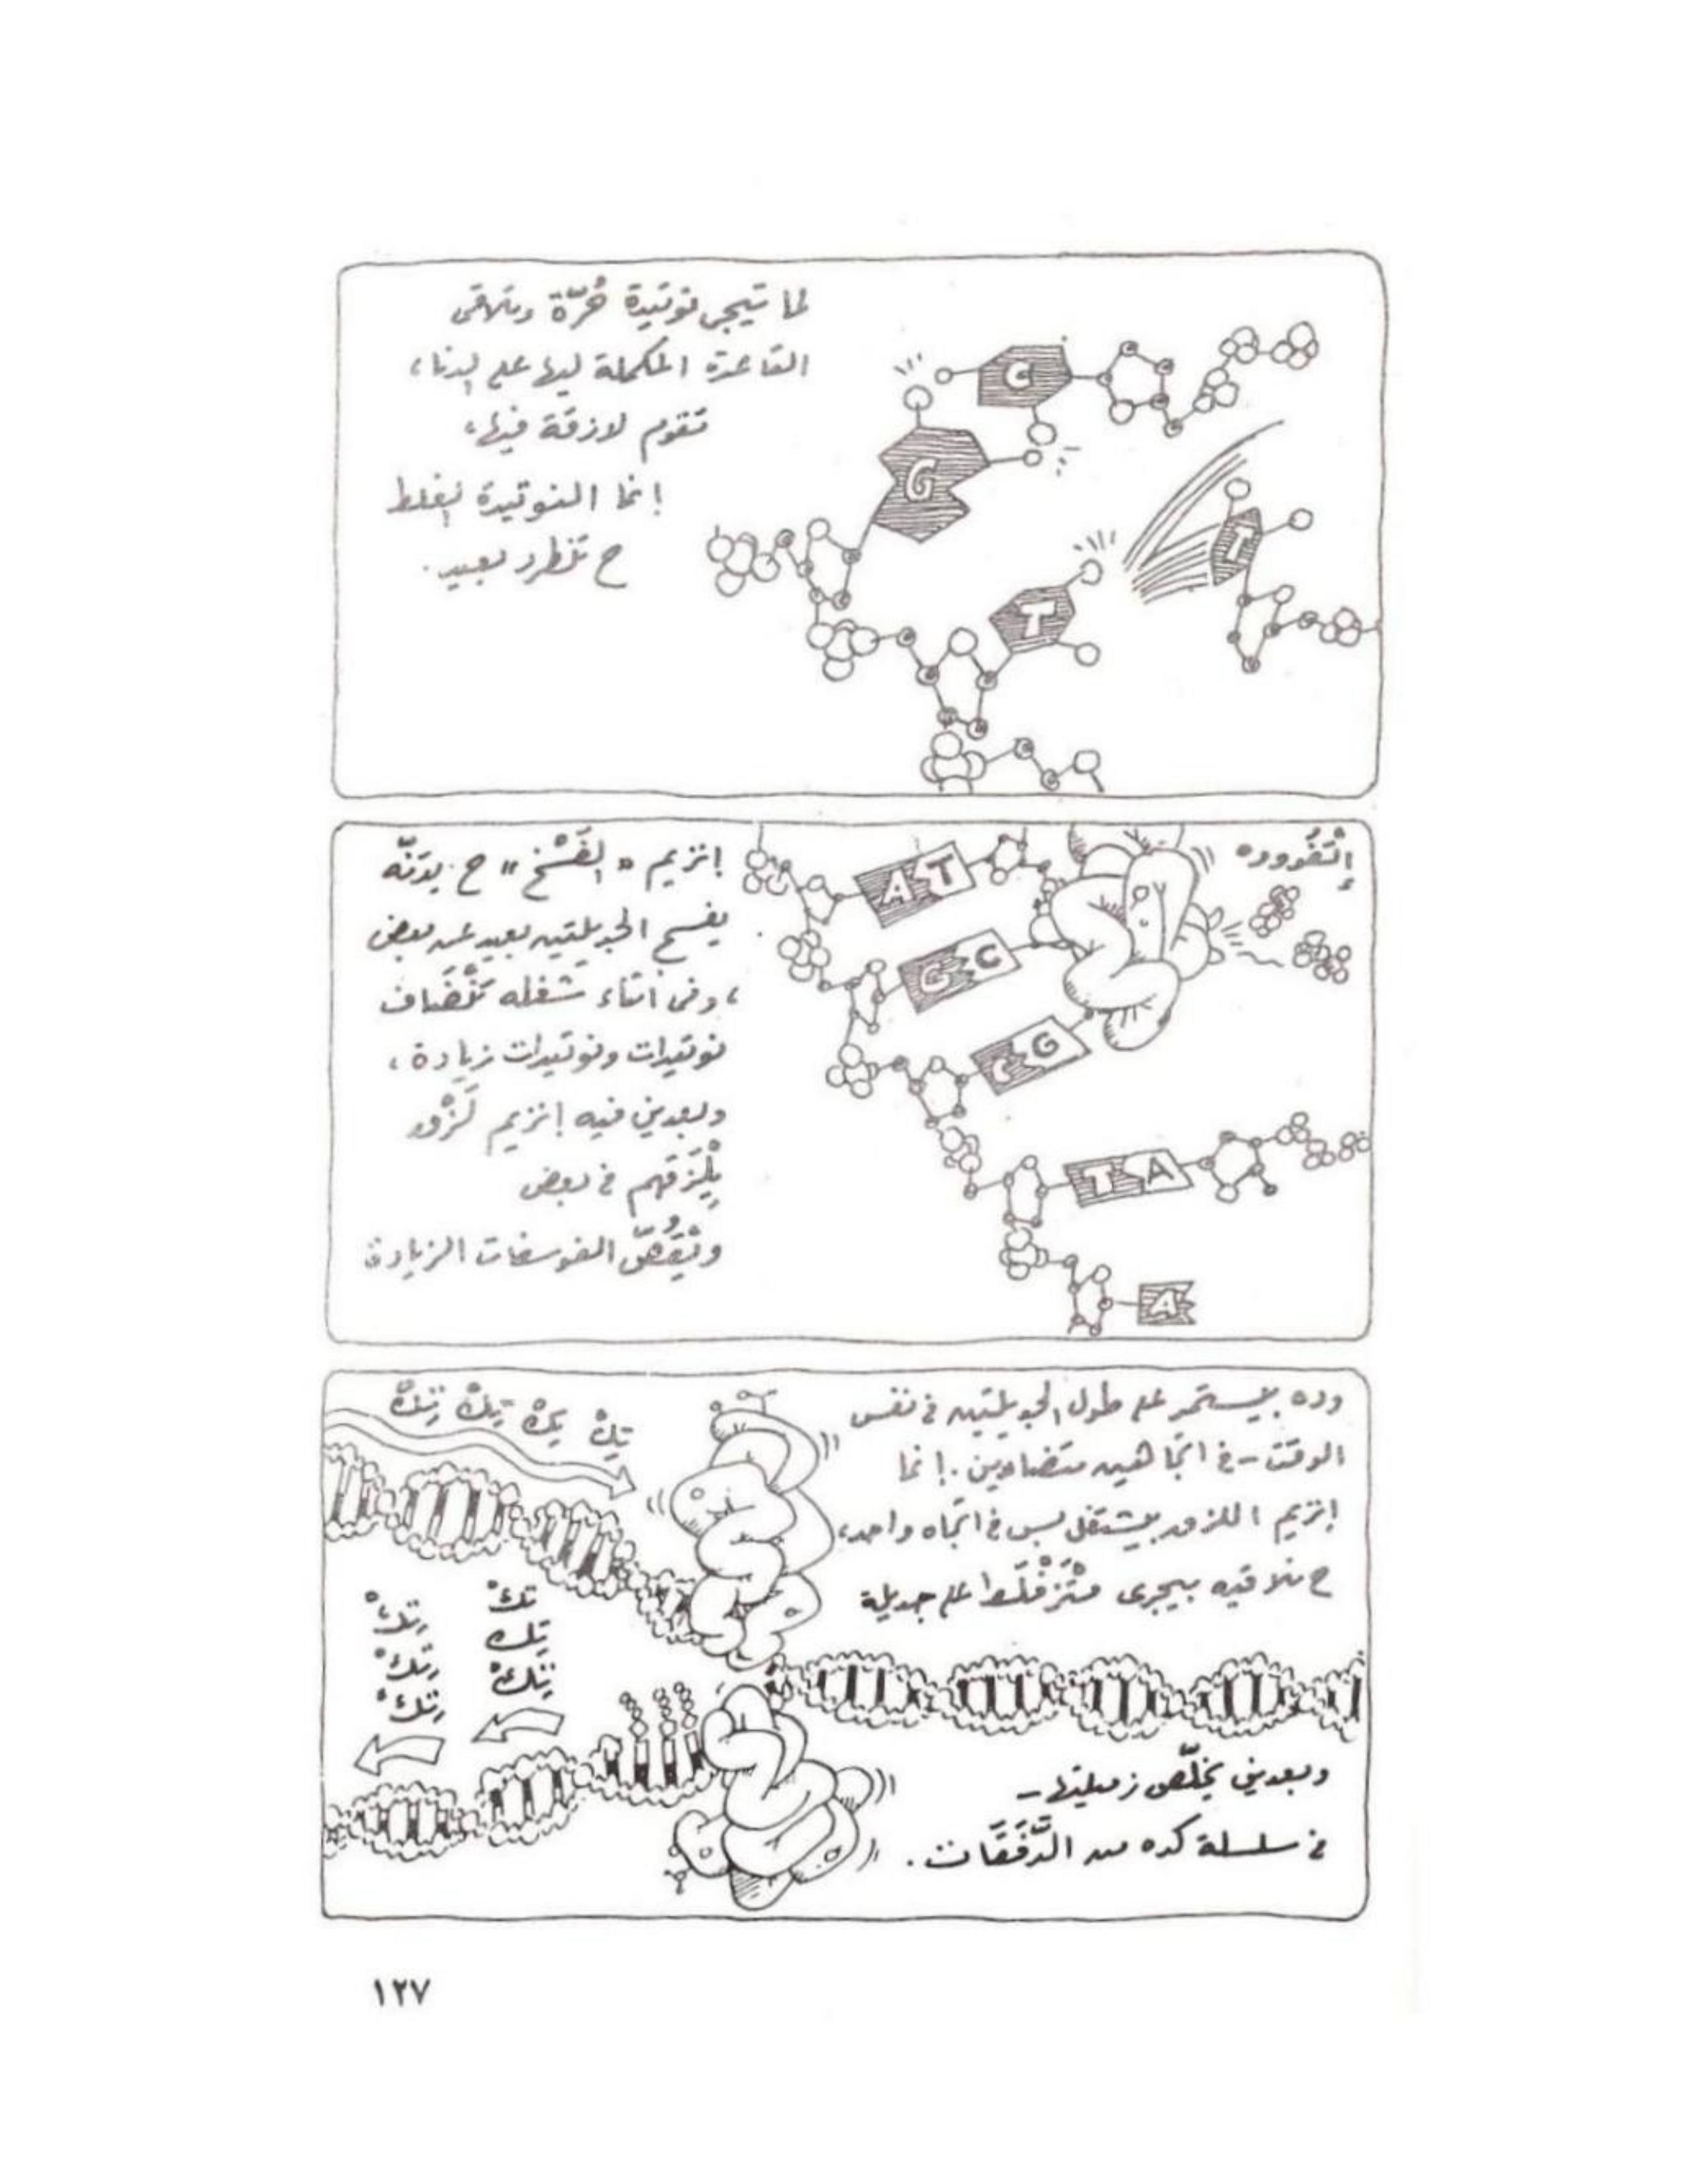 لما تيجى نوتيدة حُرّة وتلاقى
القاعدة المكملة ليها على الدنا،
تقوم لازقة فيها،
إنما النوتيدة الغلط
ح تنطرد بعيد.
C
G
T
T
إنزيم «الفَسْخ» ح يدَنّه
يفسخ الجديلتين بعيد عن بعض
، وفى أثناء شغله تنْضَاف
نوتيدات ونوتيدات زيادة،
وبعدين فيه إنزيم لَزْق
يِلْزَقهم فى بعض
الفوسفات الزيادة
A T
G C
C G
T A
A
وده بيستمر على طول الجديلتين فى نفس
الوقت - فى اتجاهين متضادين. إنما
إنزيم اللزق بيشتغل بس فى اتجاه واحد،
ح تلاقيه بيجرى على جديلة
تِكْ تِكْ تِكْ تِكْ
تِكْ
تِكْ
تِكْ
تِكْ
تِكْ
تِكْ
وبعدين يخلّص زميلتها -
فى سلسلة كده من الدَّفَقَات.
١٢٧